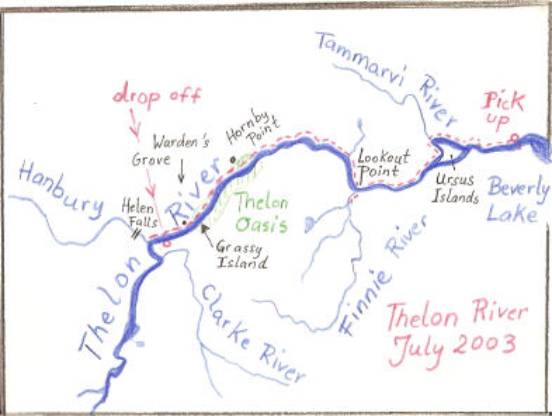 Tammarvi River
drop off
Pick
up
Warden's
Grove
Hornby
Point
Hanbury
Helen
Falls
River
Lookout
Point
Ursus
Islands
Beverly
Lake
Thelon
Oasis
Grassy
Island
Thelon
Clarke River
Finnie River
Thelon River
July 2003